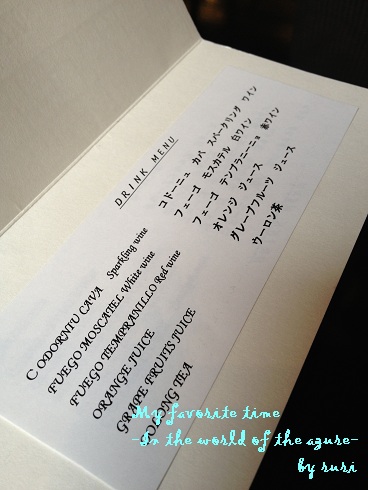 DRINK MENU
コドーニュ カバ スパークリング ワイン
フェーゴ モスカテル 白ワイン
フェーゴ テンプラニーニョ 赤ワイン
オレンジ ジュース
グレープフルーツ ジュース
ウーロン茶
C ODORNIU CAVA Sparkling wine
FUEGO MOSCATEL White wine
FUEGO TEMPRANILLO Red wine
ORANGE JUICE
GRAPE FRUITS JUICE
OOLONG TEA
My favorite time
-In the world of the azure-
by ruri